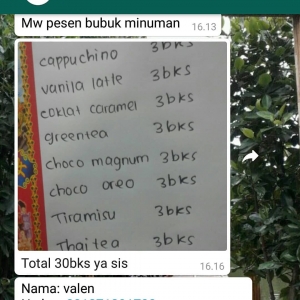 Mw pesen bubuk minuman 16.13
cappuchino 3bks
vanila latte 3bks
coklat caramel 3bks
greentea 3bks
choco magnum 3bks
choco oreo 3bks
Tiramisu 3bks
Thai tea 3bks
Total 30bks ya sis 16.16
Nama: valen